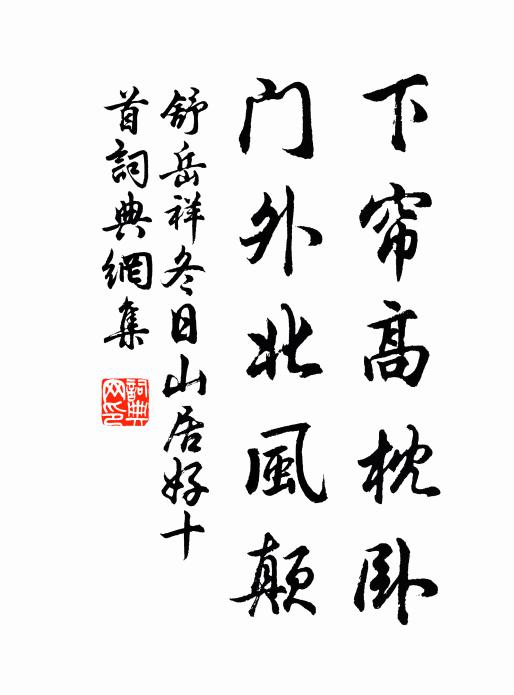 下帘高枕卧
门外北風颠
舒岳祥冬日山居好十
首詞典網集
詞典網印